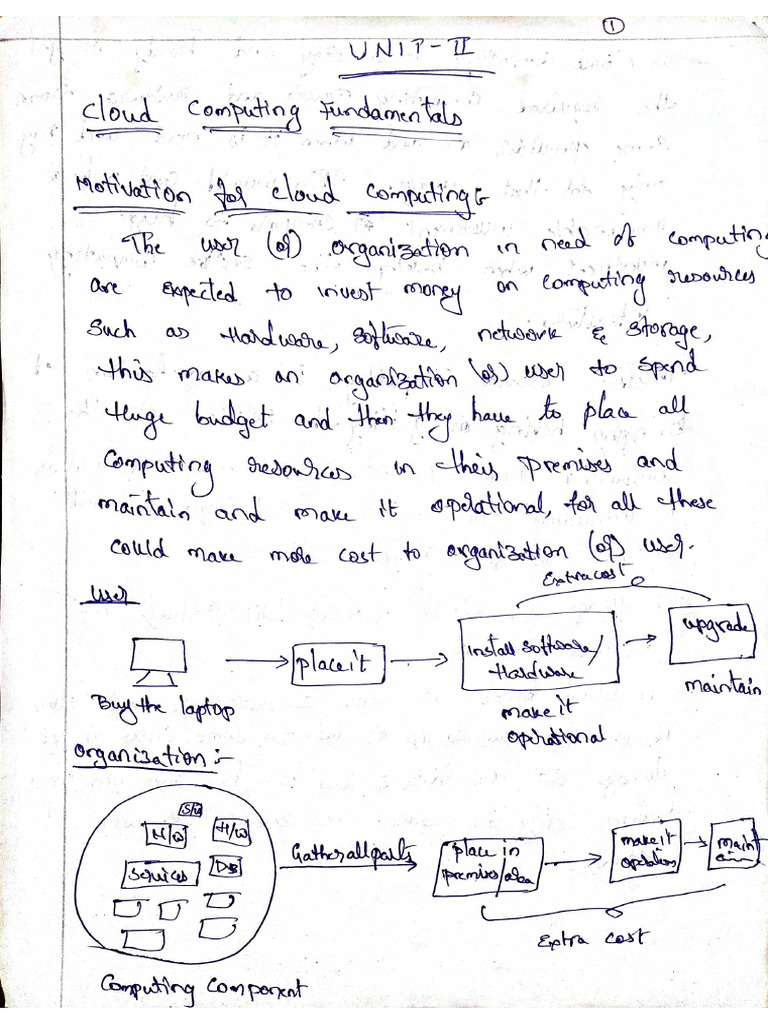 1
UNIT-II
Cloud Computing Fundamentals
Motivation for Cloud Computing:
The user (or) organization in need of computing
are expected to invest money on computing resources
such as Hardware, software, network & storage,
this makes an organization (or) user to spend
Huge budget and then they have to place all
computing resources in their premises and
maintain and make it operational, for all these
could make more cost to organization (or) user.
Extra cost
User
Buy the laptop
place it
install software/
Hardware
make it
operational
upgrade
maintain
Organization:-
S/w
N/w
H/w
Services
DB
Computing Component
Gather all parts
place in
premises/area
make it
operation
maint
ain
Extra cost